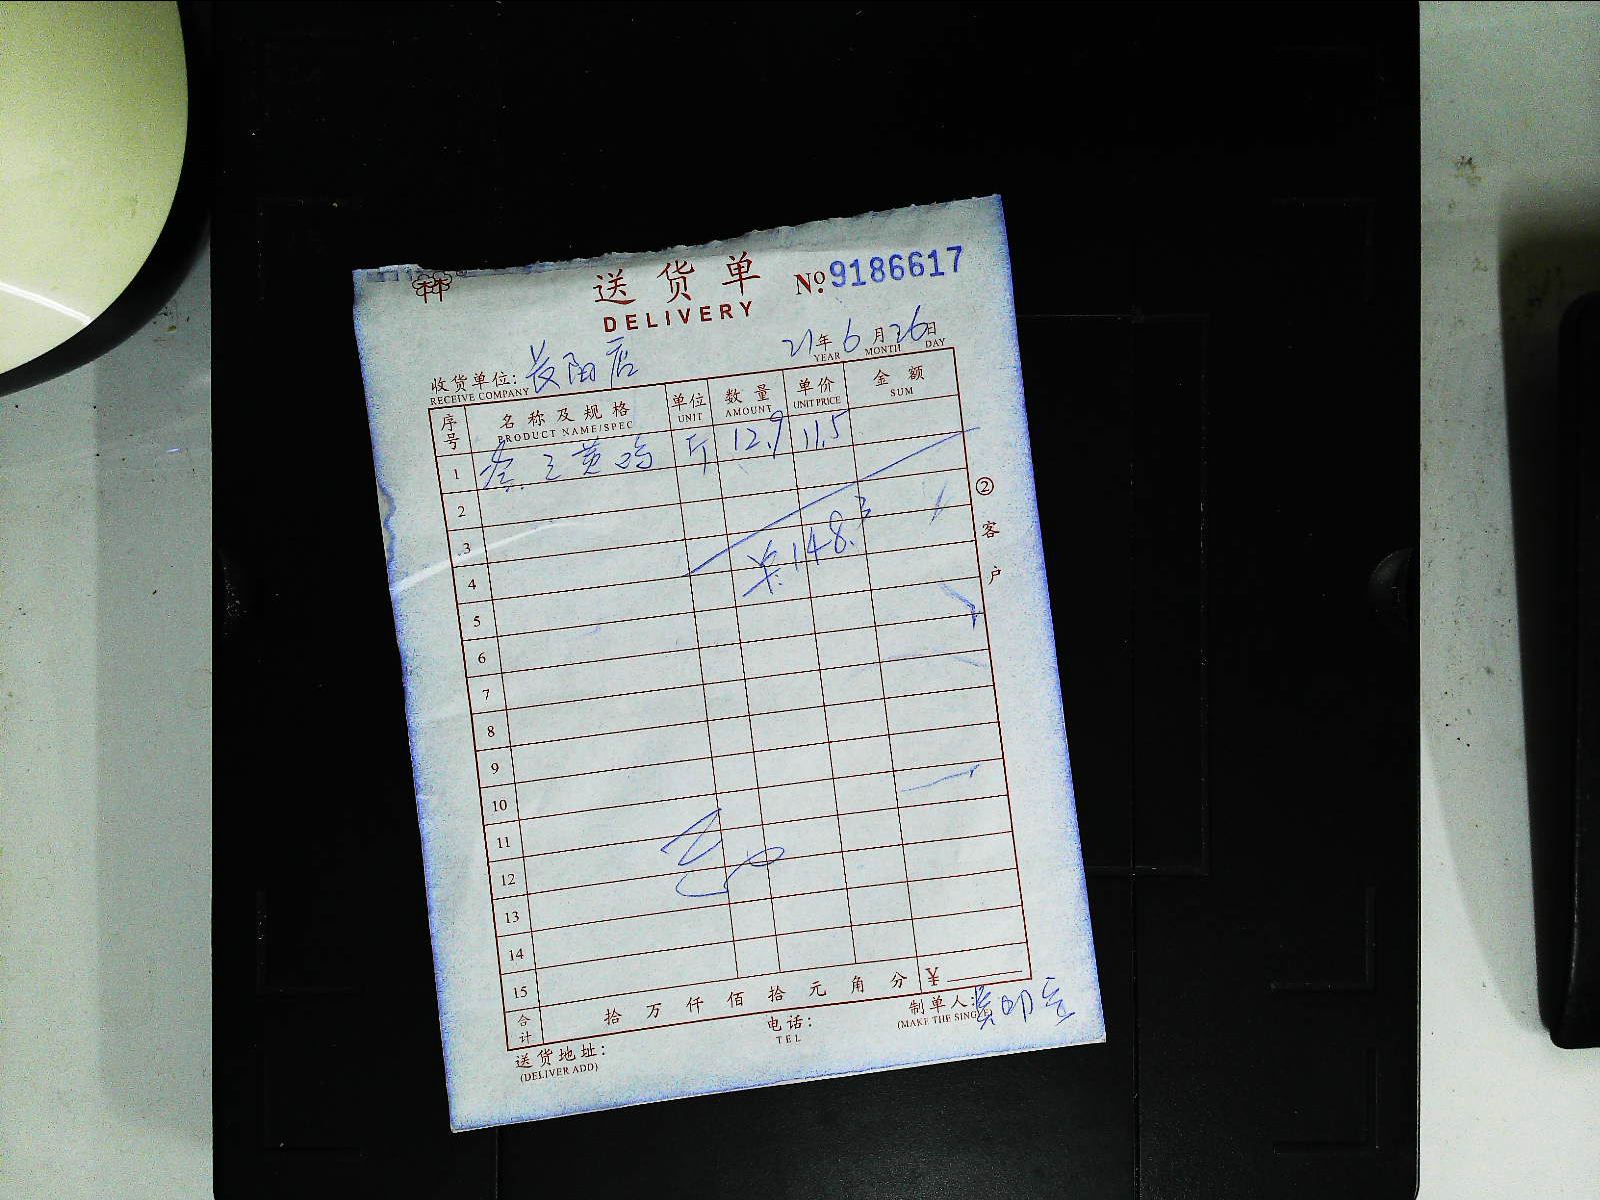 送货单 № 9186617
DELIVERY
21年 6月 26日
YEAR MONTH DAY
收货单位: 长阳店
RECEIVE COMPANY
序号 名称及规格 单位 数量 单价 金额
PRODUCT NAME/SPEC UNIT AMOUNT UNIT PRICE SUM
1 三黄鸡 斤 12.9 11.5
2
3
4 ¥:148.3
5
6
7
8
9
10
11
12
13
14
15
合计 拾 万 仟 佰 拾 元 角 分 ¥
② 客户
送货地址: 电话: 制单人:
(DELIVER ADD) TEL (MAKE THE SINGLE